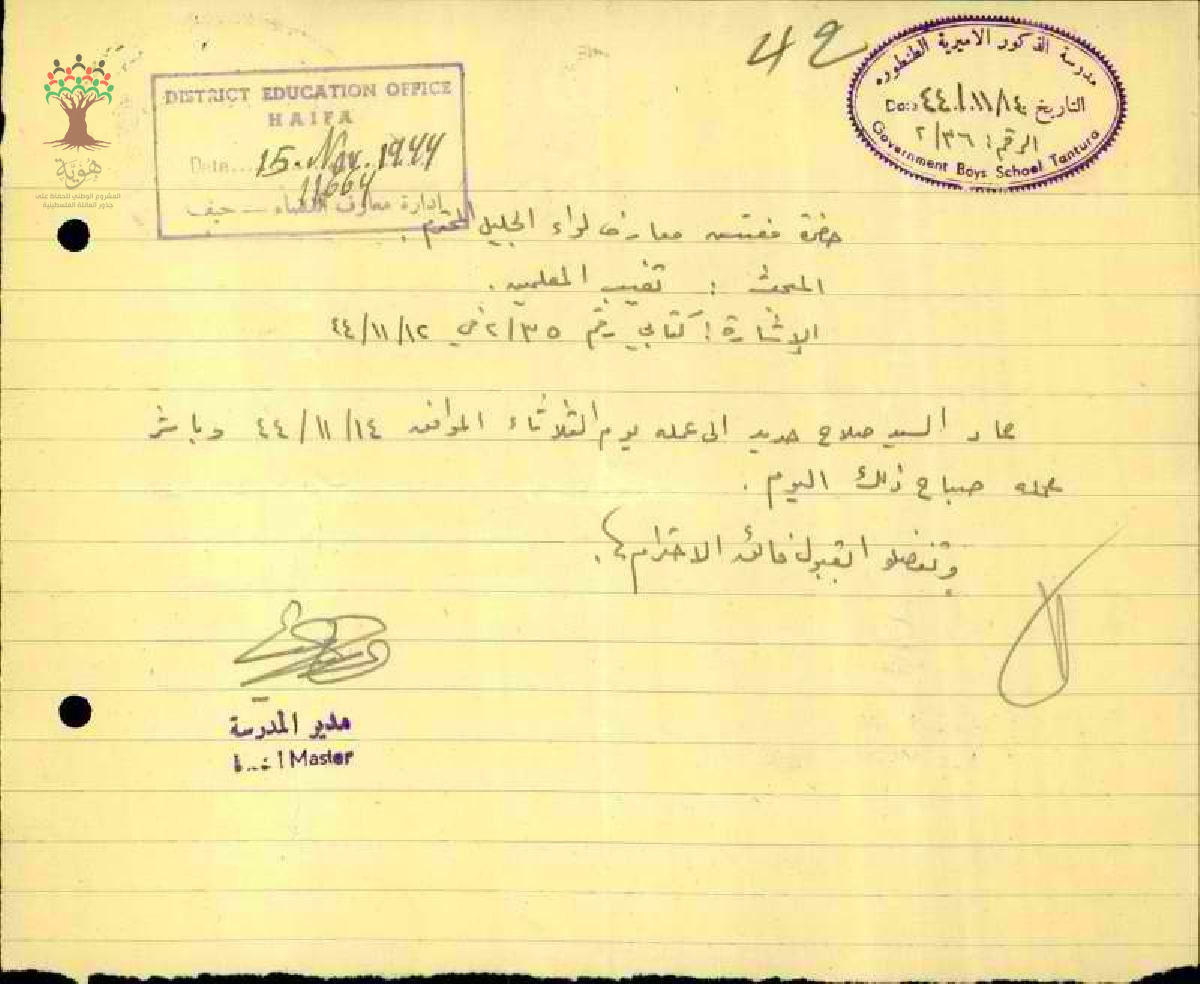 هويّة
المشروع الوطني للحفاظ على
جذور العائلة الفلسطينية
DISTRICT EDUCATION OFFICE
HAIFA
Date... 15. Nov. 1944
11664
إدارة معارف اللواء — حيفا
42
مدرسة الذكور الاميرية الطنطوره
التاريخ ٤٤/١١/١٤ Date
الرقم: ٢/٣٦
Government Boys School Tantura
حضرة مفتش معارف لواء الجليل المحترم.
المبحث : تغيب المعلمين .
الإشارة : كتابي رقم ٢/٣٥ في ٤٤/١١/١٢
عاد السيد صلاح حديد الى عمله يوم الثلاثاء الموافق ٤٤/١١/١٤ وباشر
عمله صباح ذلك اليوم .
وتفضلو القبول فائق الاحترام .
مدير المدرسة
Master